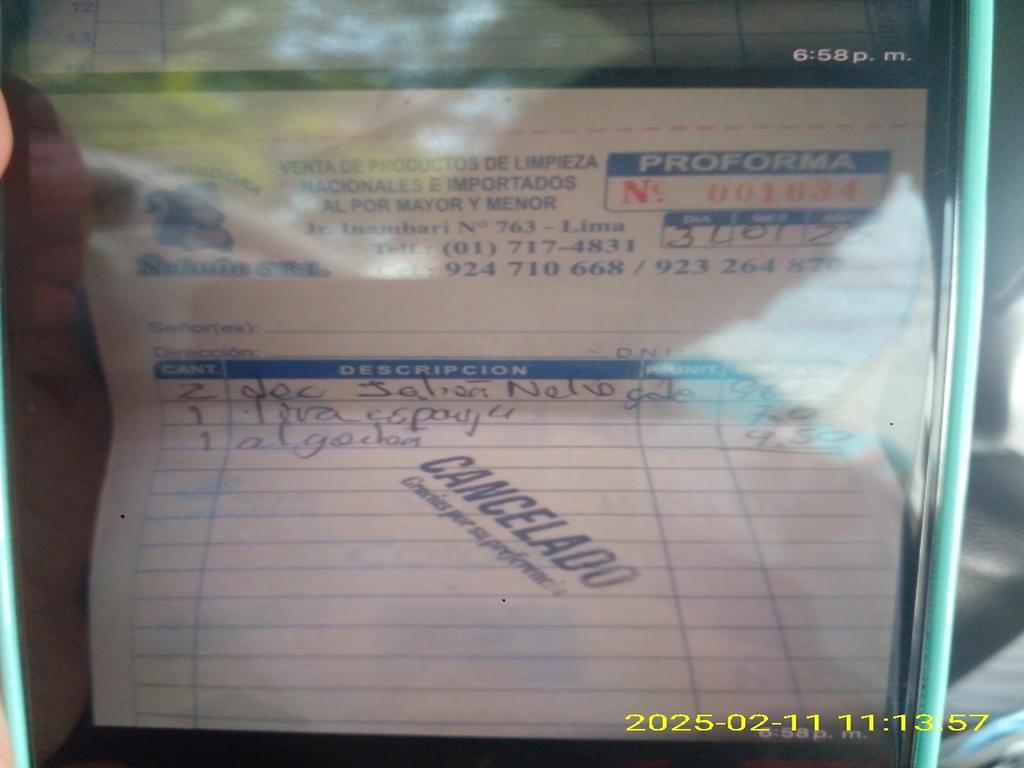 12
13
6:58 p. m.
VENTA DE PRODUCTOS DE LIMPIEZA
NACIONALES E IMPORTADOS
AL POR MAYOR Y MENOR
Jr. Inambari Nº 763 - Lima
Telf.: (01) 717-4831
Cel.: 924 710 668 / 923 264 870
PROFORMA
Nº 001634
DIA MES AÑO
31 01
Señor(es):
Dirección: D.N.I.
CANT. DESCRIPCION P.UNIT.
2 Jabón
1
1 algodon 4.50
CANCELADO
Gracias por su preferencia
2025-02-11 11:13:57
6:58 p. m.